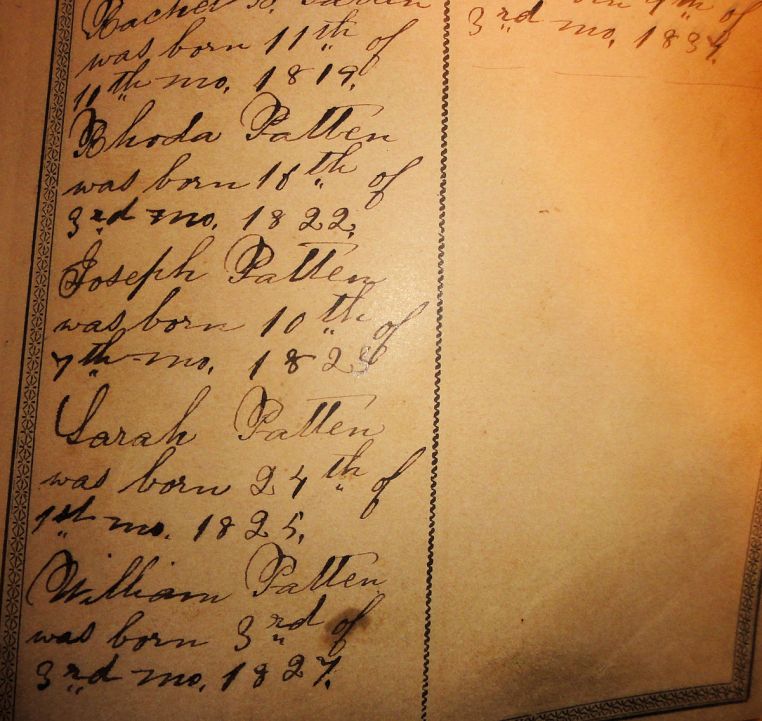 Rachel
was born 11th of
11th mo. 1819.
Rhoda Patten
was born 18th of
3rd mo. 1822.
Joseph Patten
was born 10th of
7th mo. 1823
Sarah Patten
was born 24th of
1st mo. 1825.
William Patten
was born 3rd of
3rd mo. 1827.
of
3rd mo. 1834.